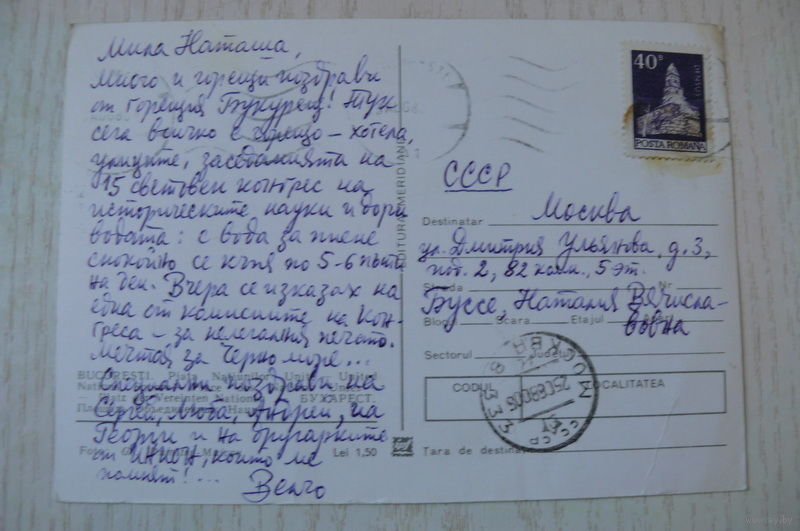 Мила Наташа,
много и горещи поздрави
от горещия Букурещ! Тук
сега всичко е горещо – хотела,
улиците, заседанията на
15 световен конгрес на
историческите науки и дори
водата: с вода за пиене
спокойно се къпя по 5-6 пъти
на ден. Вчера се изказах на
една от комисиите на Кон-
греса – за нелегалния печат.
Мечтая за Черно море...
Специални поздрави на
Сергей, Люба, Андрей, на
Георги и на другарките
от ИНИОН, които ме
помнят!...
Венчо
EDITURA MERIDIANE
BUCUREŞTI. Piaţa Naţiunilor Unite
Platz der Vereinten Nationen БУХАРЕСТ.
Foto:
Lei 1,50
40B
DENSUŞ
POSTA ROMANA
СССР
Destinatar Москва
ул. Дмитрия Ульянова, д. 3,
под. 2, 82 комн., 5 эт.
Strada Nr
Буссе, Наталия Вячесла-
вовна
Bloc Scara Etajul
Sectorul Judeţul
CODUL LOCALITATEA
Tara de destinaţie
МОСКВА
СССР
250880